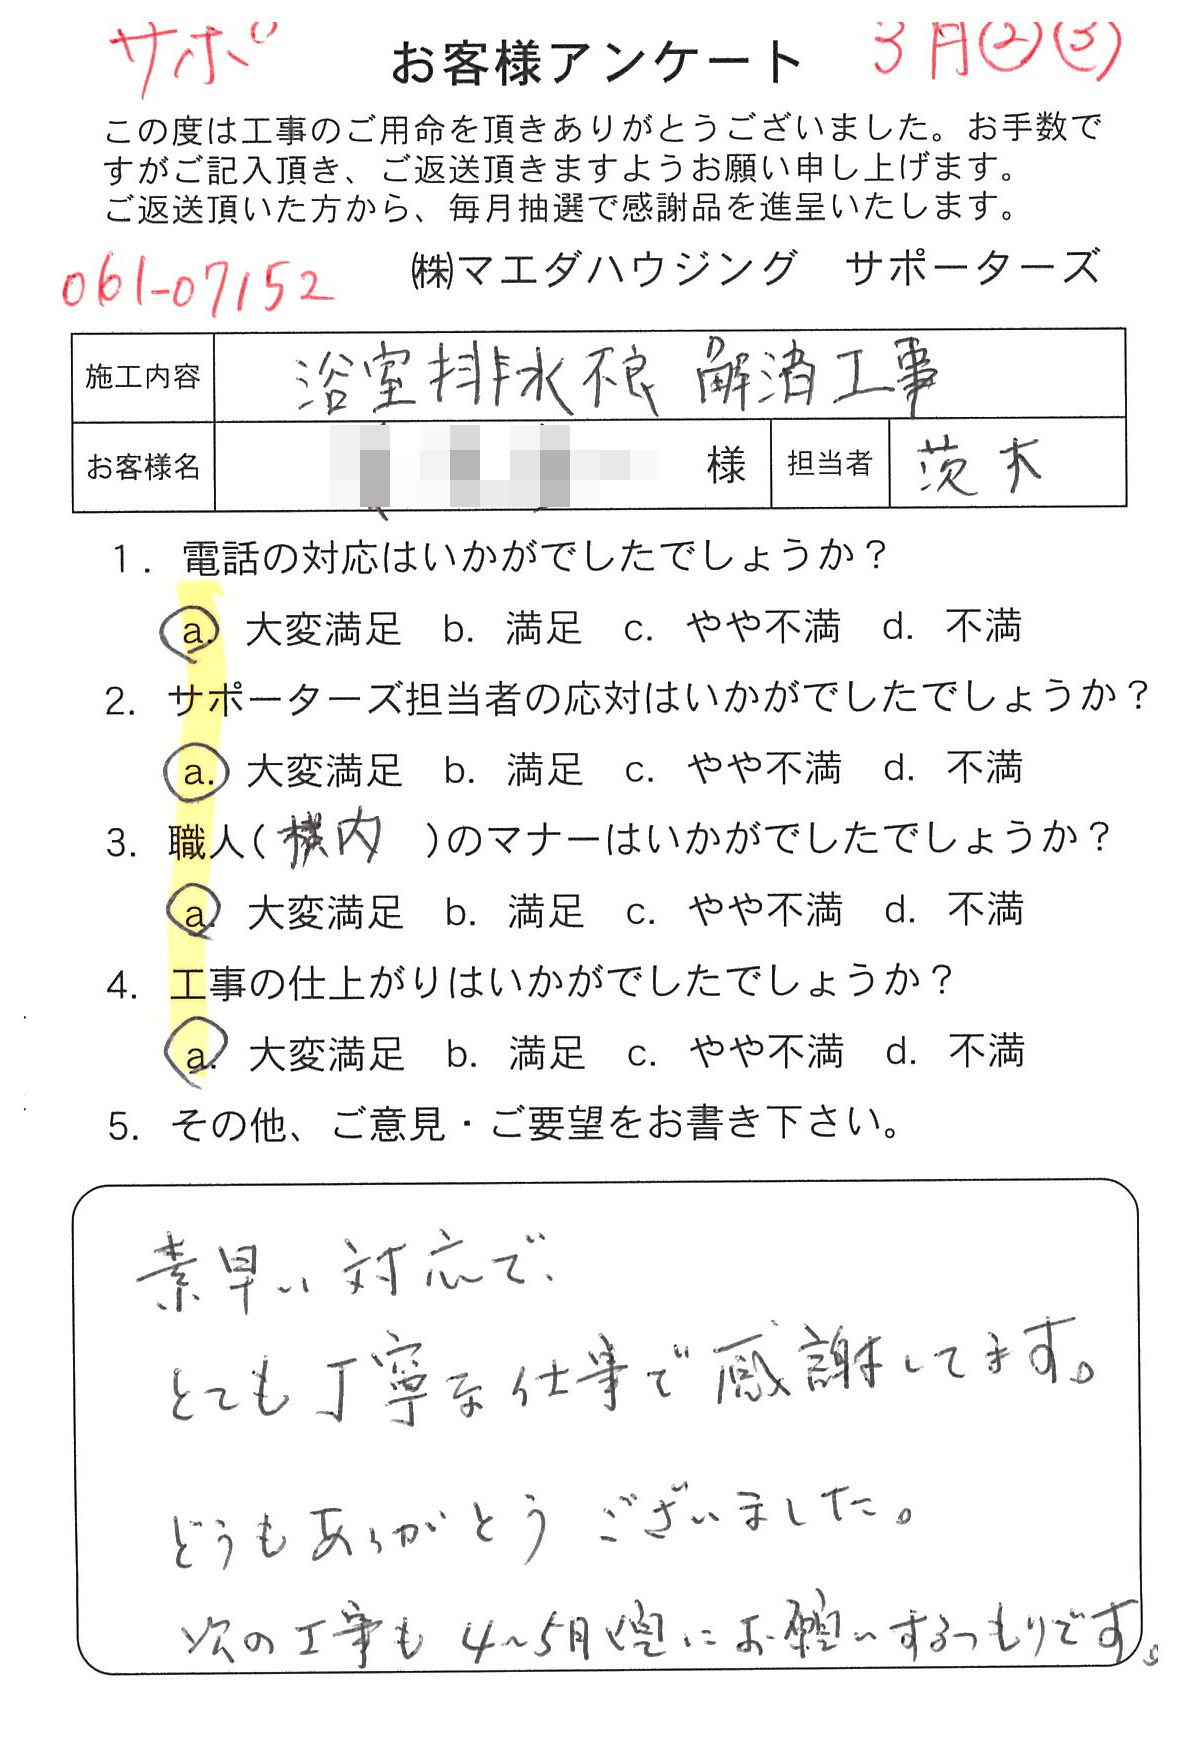 サポ お客様アンケート 3月②③
この度は工事のご用命を頂きありがとうございました。お手数で
すがご記入頂き、ご返送頂きますようお願い申し上げます。
ご返送頂いた方から、毎月抽選で感謝品を進呈いたします。
061-07152 ㈱マエダハウジング サポーターズ
施工内容 浴室排水不良 解消工事
お客様名 様 担当者 茨木
1. 電話の対応はいかがでしたでしょうか？
a. 大変満足 b. 満足 c. やや不満 d. 不満
2. サポーターズ担当者の応対はいかがでしたでしょうか？
a. 大変満足 b. 満足 c. やや不満 d. 不満
3. 職人( 横内 )のマナーはいかがでしたでしょうか？
a. 大変満足 b. 満足 c. やや不満 d. 不満
4. 工事の仕上がりはいかがでしたでしょうか？
a. 大変満足 b. 満足 c. やや不満 d. 不満
5. その他、ご意見・ご要望をお書き下さい。
素早い対応で、
とても丁寧な仕事で感謝してます。
どうもありがとうございました。
次の工事も4〜5月頃にお願いするつもりです。